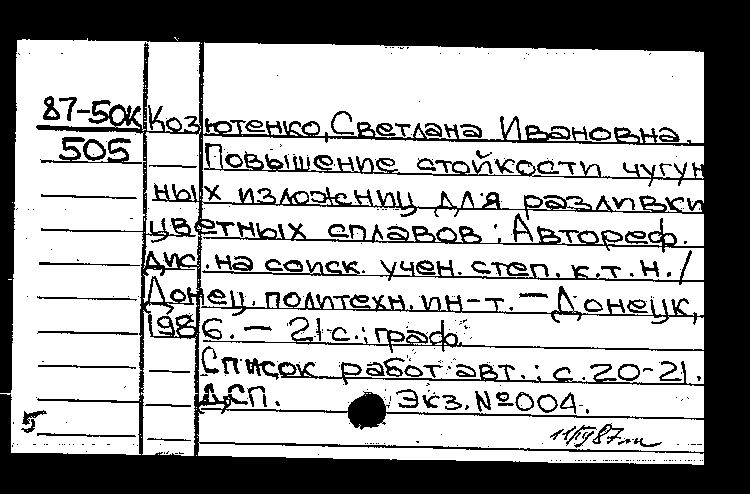 87-50К Козютенко, Светлана Ивановна.
505 Повышение стойкости чугун
ных изложниц для разливки
цветных сплавов : Автореф.
дис. на соиск. учен. степ. к.т.н. /
Донец. политехн. ин-т. — Донецк,
1986. — 21 с.; граф.
Список работ авт.: с. 20-21.
ДСП. Экз. №004.
5